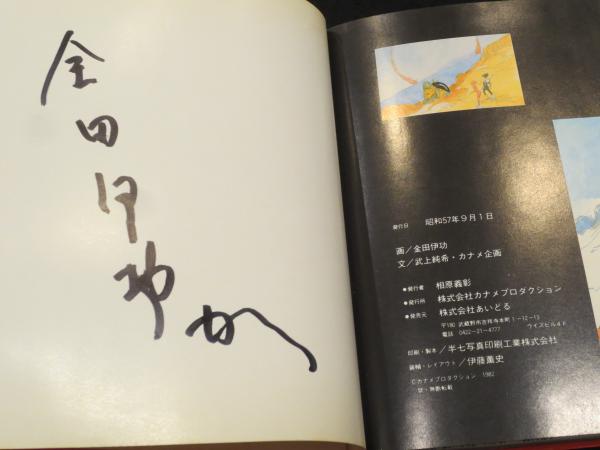 金田伊功
発行日 昭和57年9月1日
画／金田伊功
文／武上純希・カナメ企画
●発行者 相原義彰
●発行所 株式会社カナメプロダクション
●発売元 株式会社あいどる
〒180 武蔵野市吉祥寺本町1-12-13
ウイズビル4F
電話 0422-21-4777
印刷・製本／半七写真印刷工業株式会社
装幀・レイアウト／伊藤薫史
©カナメプロダクション 1982
禁・無断転載